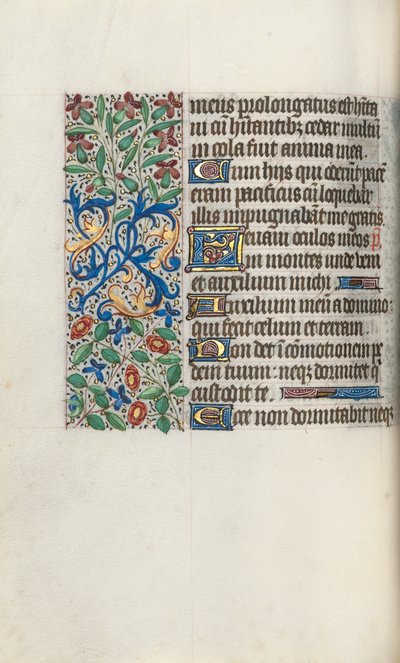 meus prolongatus est hīta
ui cū hītantibz cedar multū
in cola fuit anima mea.
Cum hijs qui oderūt pacē
eram pacificus cū loquebar
illis impugnabāt me gratis.
Leuaui oculos meos p̄.
in montes unde veni
et auxilium michi
Auxilium meū a domino:
qui fecit celum et terram
Non det ī cōmotionem pe
dem tuum: neqz dormitet q̄
custodit te
Ecce non dormitabit neqz